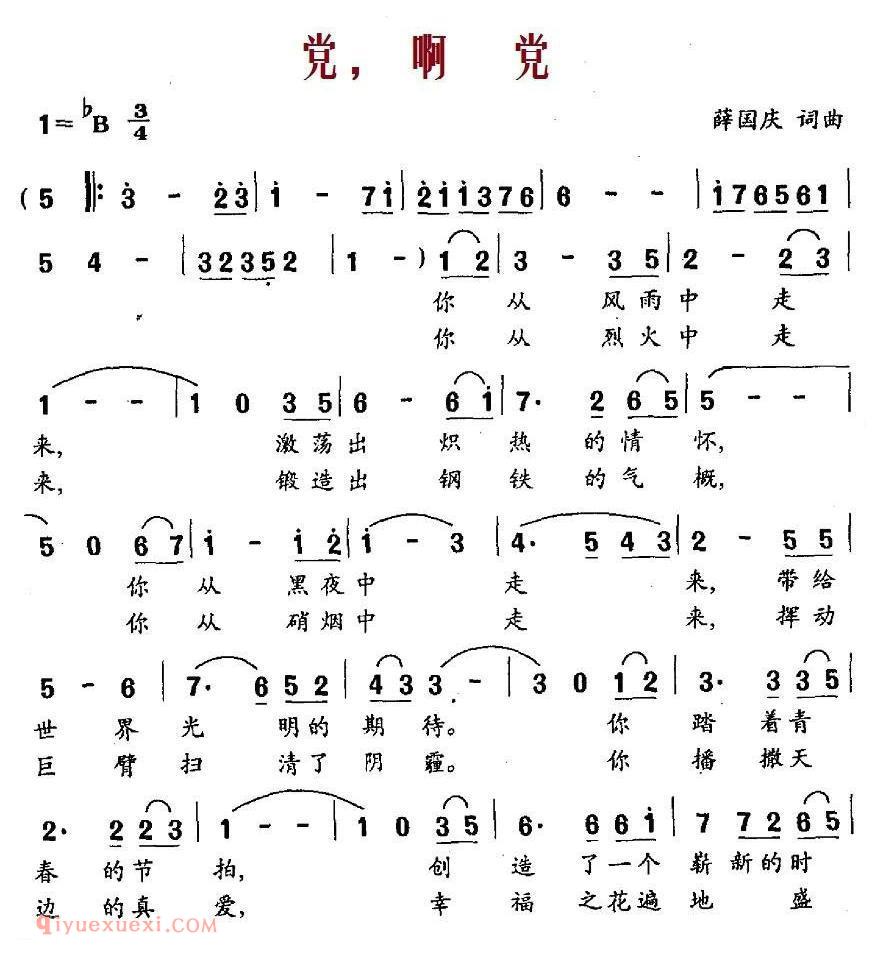 党，啊 党
1=♭B 3/4 薛国庆 词曲
(5 ‖: 3̇ - 2̇3̇ | 1̇ - 71̇ | 2̇1̇1̇376 | 6 - - | 1̇76561 |
5 4 - | 32352 | 1 - ) 12 | 3 - 35 | 2 - 23 |
你从 风雨中 走
你从 烈火中 走
1 - - | 1 0 35 | 6 - 61̇ | 7· 2 65 | 5 - - |
来， 激荡出 炽热 的情怀，
来， 锻造出 钢铁 的气概，
5 0 67 | 1̇ - 1̇2̇ | 1̇ - 3 | 4· 5 43 | 2 - 55 |
你从 黑夜中 走 来，带给
你从 硝烟中 走 来，挥动
5 - 6 | 7· 6 52 | 433 - | 3 0 12 | 3· 3 35 |
世界光 明的期待。 你踏着青
巨臂扫 清了阴霾。 你播撒天
2· 2 23 | 1 - - | 1 0 35 | 6· 6 61̇ | 7 72 65 |
春的节拍， 创造了一个崭新的时
边的真爱， 幸福之花遍地盛
qiyuexuexi.com